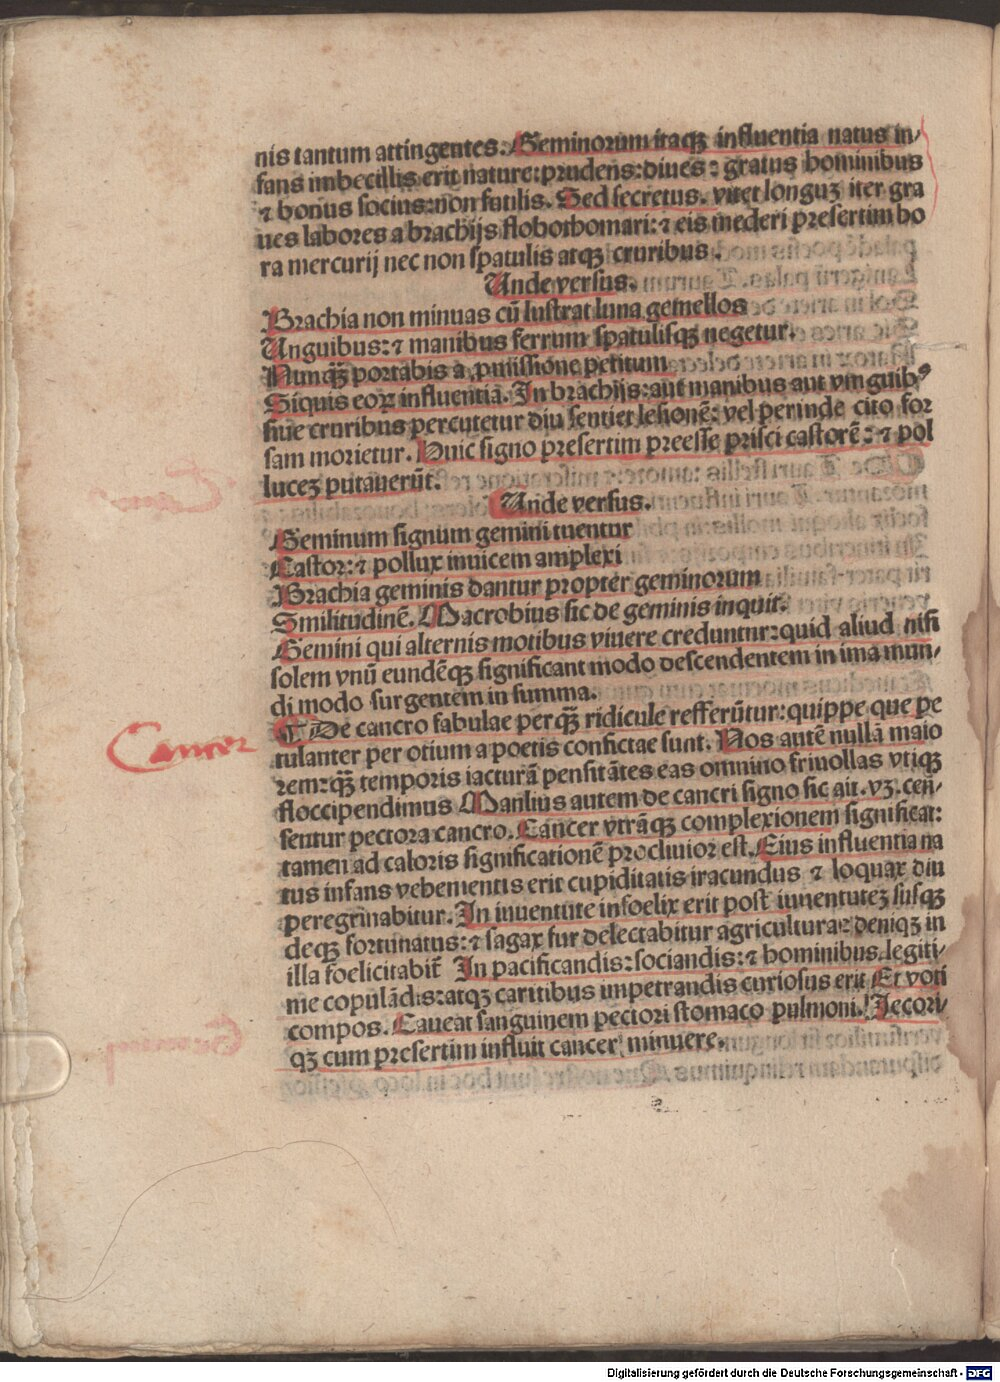 nis tantum attingentes. Geminorum itaqꝫ influentia natus in-
fans imbecillis erit nature: prudens: diues: gratus hominibus
⁊ bonus socius: non futilis. Sed secretus. vitet longuꝫ iter gra
ues labores a brachijs flobothomari: ⁊ eis mederi presertim ho
ra mercurij nec non spatulis atqꝫ cruribus.
Unde versus.
Brachia non minuas cū lustrat luna gemellos
Unguibus: ⁊ manibus ferrum spatulisqꝫ negetur.
Nunqꝫ̄ portabis a ꝓmissione petitum
Siquis eoꝝ influentia. In brachijs: aut manibus aut vnguibꝰ
siue cruribus percutetur diu sentiet lesionē: vel perinde cito for
sam morietur. Huic signo presertim preesse prisci castorē: ⁊ pol
luceꝫ putauerūt.
Unde versus.
Geminum signum gemini tuentur
Castor: ⁊ pollux inuicem amplexi
Brachia geminis dantur propter geminorum
Smilitudinē. Macrobius sic de geminis inquit.
Gemini qui alternis motibus viuere creduntur: quid aliud nisi
solem vnū eundēqꝫ significant modo descendentem in ima mun-
di modo surgentem in summa.
De cancro fabulae perqꝫ̄ ridicule refferūtur: quippe que pe
Cancer
tulanter per otium a poetis confictae sunt. Nos autē nullā maio
rem: qꝫ̄ temporis iacturā pensitātes eas omnino friuollas vtiqꝫ
floccipendimus Manlius autem de cancri signo sic ait. vꝫ. cen-
sentur pectora cancro. Cancer vtrāqꝫ complexionem significat:
tamen ad caloris significationē procliuior est. Eius influentia na
tus infans vehementis erit cupiditatis iracundus ⁊ loquax diu
peregrinabitur. In iuuentute infoelix erit post iuuentuteꝫ susqꝫ
deqꝫ fortunatus: ⁊ sagax fur delectabitur agricultura: deniqꝫ in
illa foelicitabit̄ In pacificandis: sociandis: ⁊ hominibus legiti-
me copulādis: atqꝫ caritibus impetrandis curiosus erit Et voti
compos. Caueat sanguinem pectori stomaco pulmoni. Jecori-
qꝫ cum presertim influit cancer minuere.
Digitalisierung gefördert durch die Deutsche Forschungsgemeinschaft - DFG